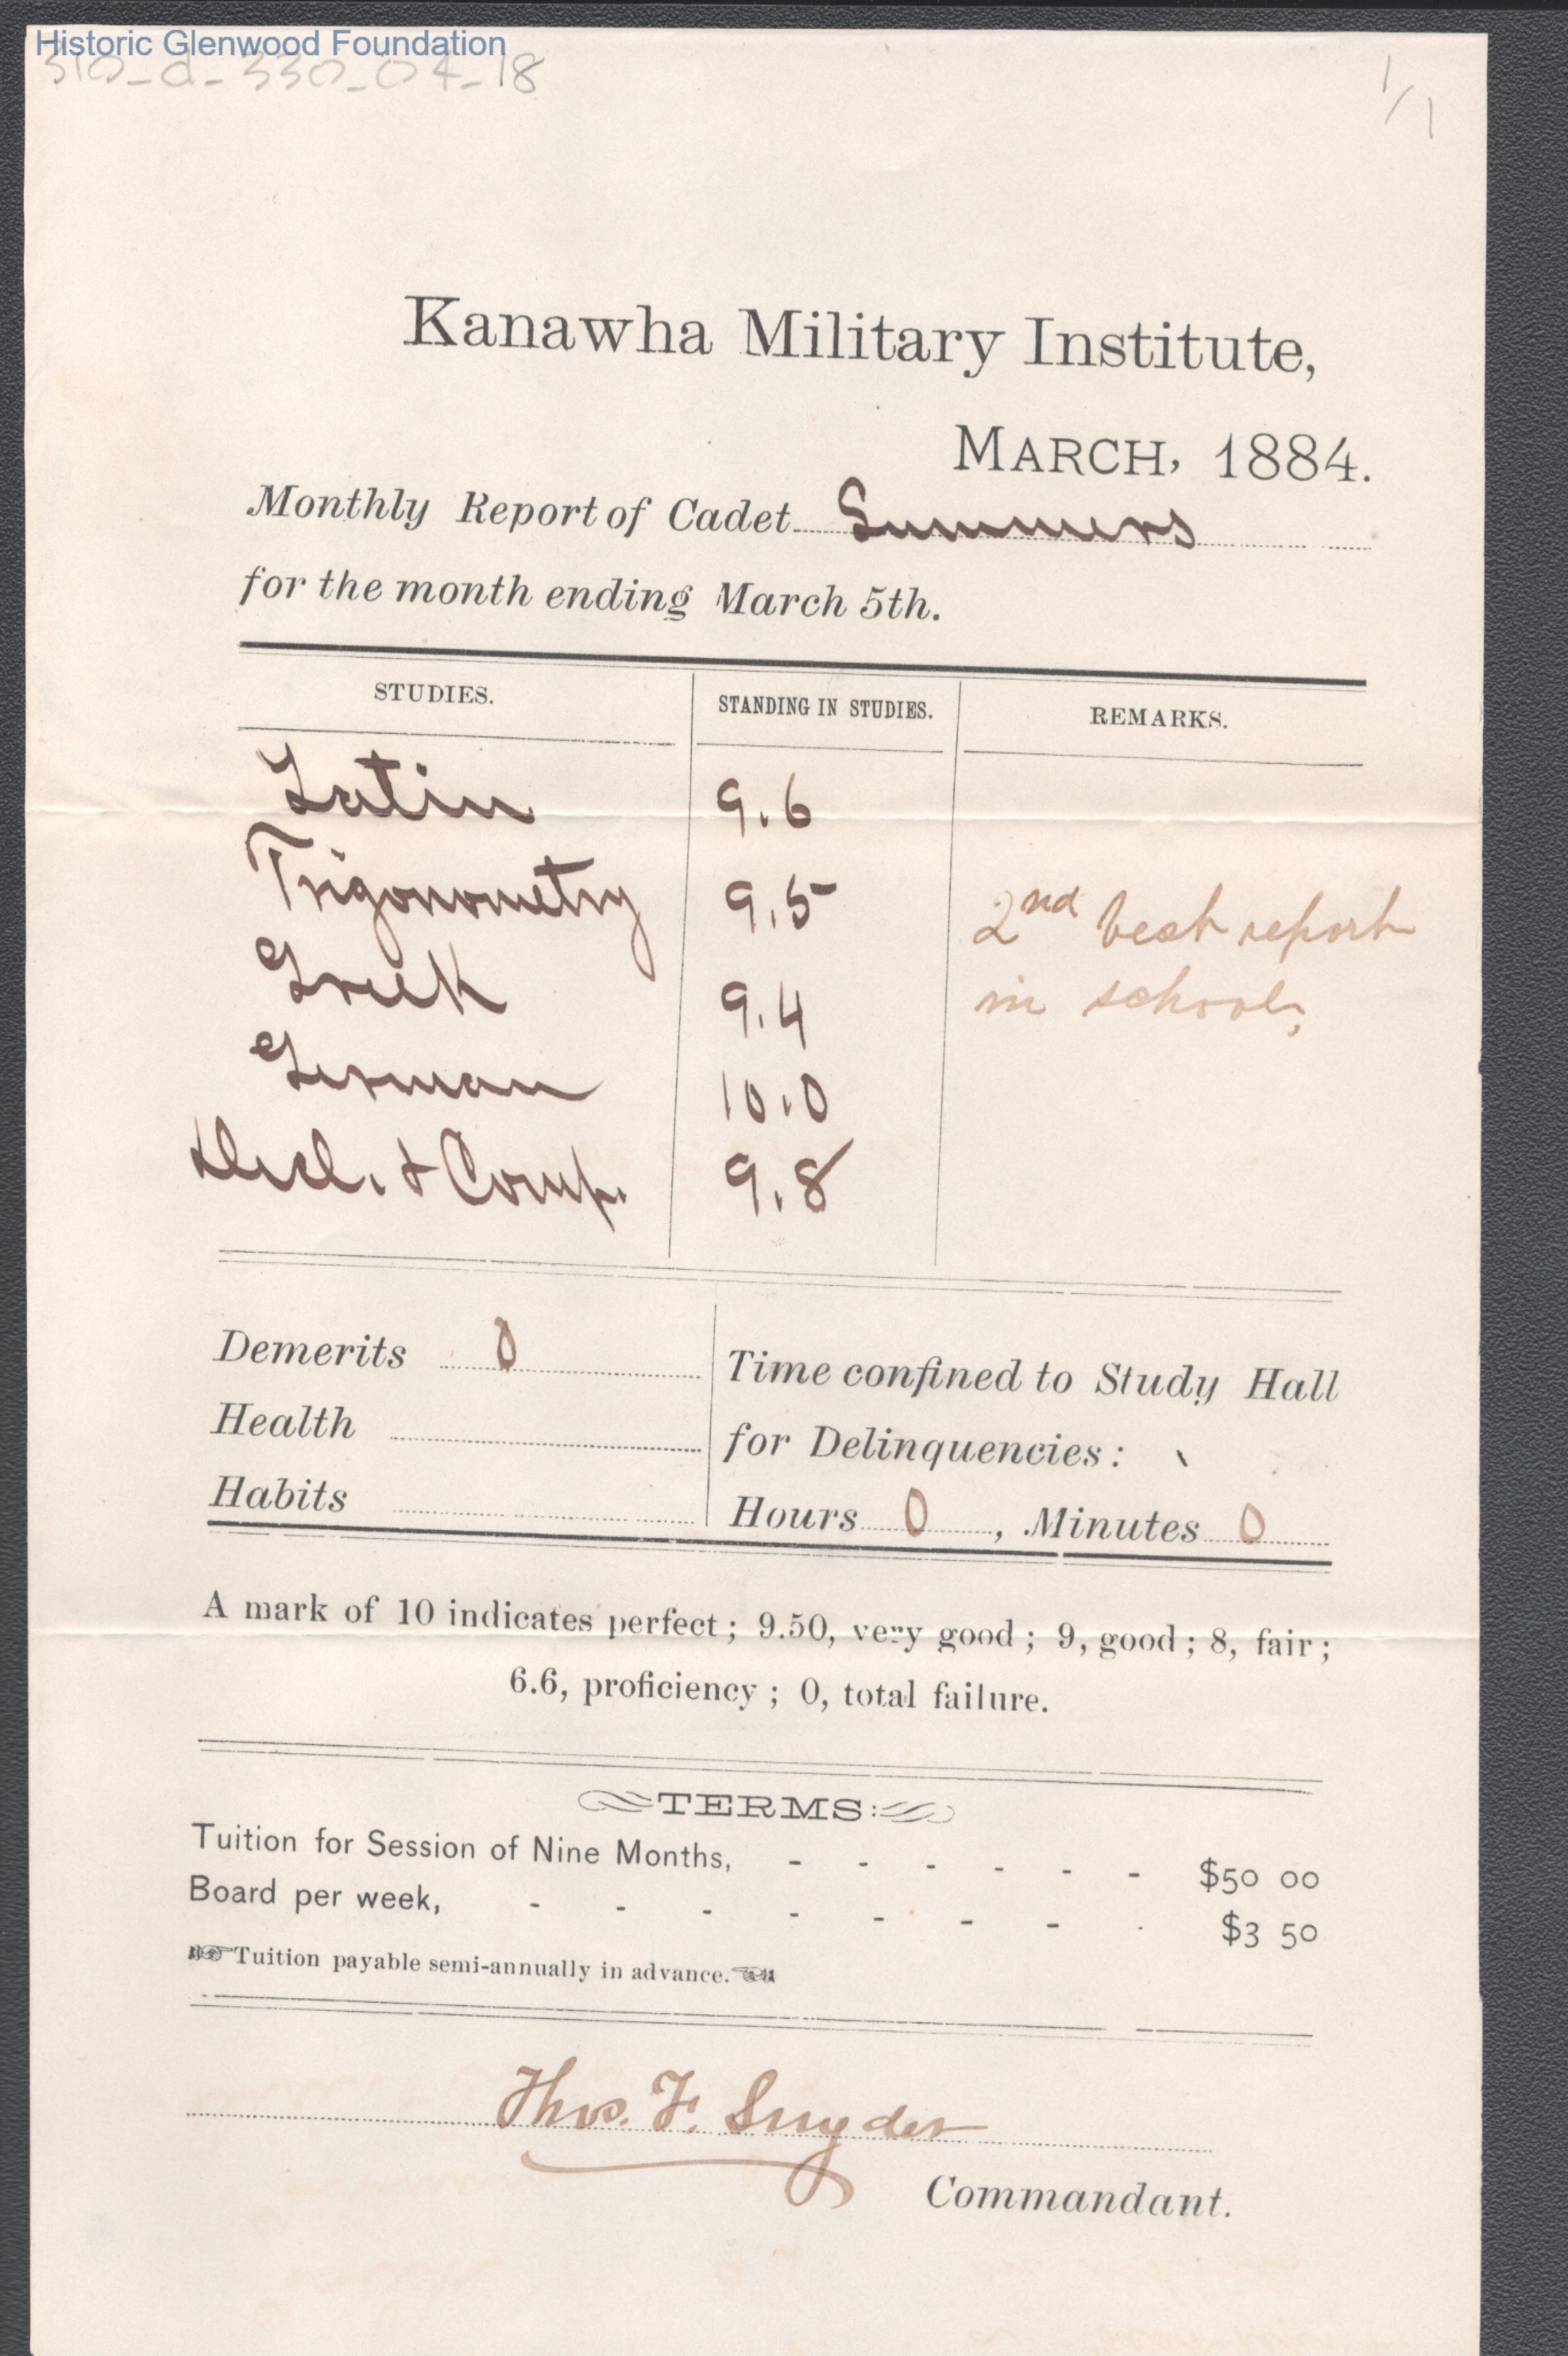 Historic Glenwood Foundation
310-d-330-04-18
1/1
Kanawha Military Institute,
MARCH, 1884.
Monthly Report of Cadet Summers
for the month ending March 5th.
STUDIES. STANDING IN STUDIES. REMARKS.
Latin 9.6
Trigonometry 9.5 2nd best report
Greek 9.4 in school.
German 10.0
Decl. & Comp. 9.8
Demerits 0 Time confined to Study Hall
Health for Delinquencies:
Habits Hours 0, Minutes 0
A mark of 10 indicates perfect; 9.50, very good; 9, good; 8, fair;
6.6, proficiency; 0, total failure.
TERMS:
Tuition for Session of Nine Months, - - - - - - $50 00
Board per week, - - - - - - - - - $3 50
Tuition payable semi-annually in advance.
Thos. F. Snyder
Commandant.